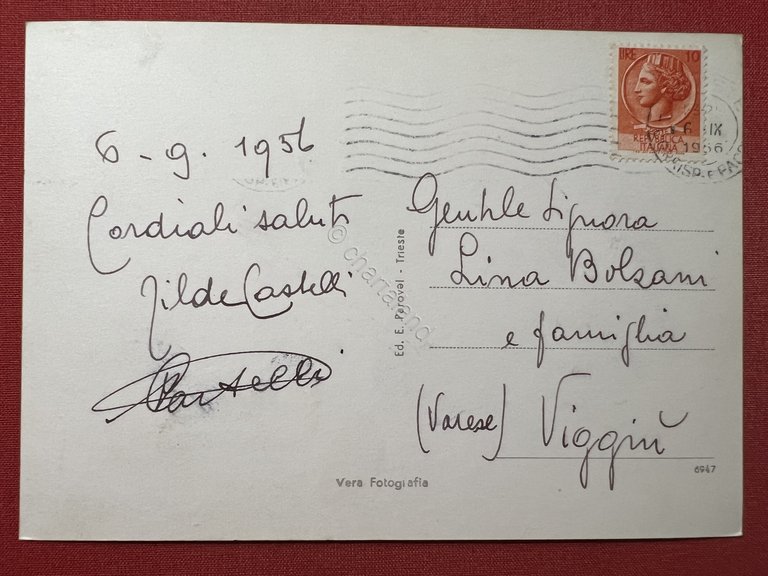 LIRE 10
REPUBBLICA
ITALIANA
6 IX
1956
6 - 9. 1956
Cordiali saluti
Tilde Castelli
Castelli
Gentile Signora
Lina Bolzani
e famiglia
(Varese) Viggiù
Ed. E. Perovel - Trieste
Vera Fotografia
6947
© chartaland